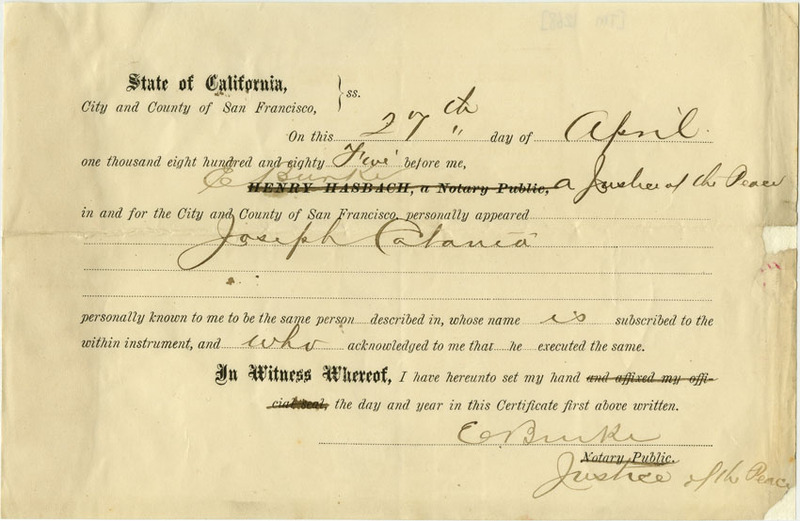 State of California,
City and County of San Francisco, } ss.
On this 27th " day of April
one thousand eight hundred and eighty Five before me,
E Burke
HENRY HASBACH, a Notary Public, a Justice of the Peace
in and for the City and County of San Francisco, personally appeared
Joseph Catania
personally known to me to be the same person described in, whose name is subscribed to the
within instrument, and who acknowledged to me that he executed the same.
In Witness Whereof, I have hereunto set my hand and affixed my offi-
cial seal, the day and year in this Certificate first above written.
E Burke
Notary Public.
Justice of the Peace